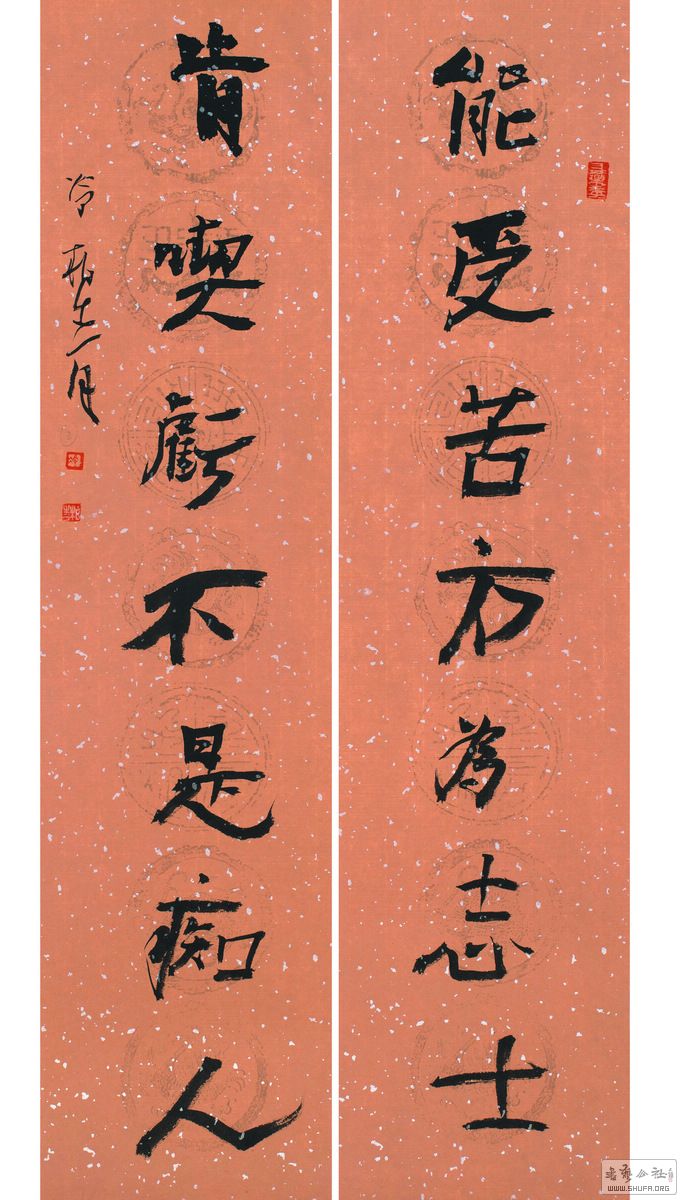 能受苦方為志士
肯喫虧不是痴人
书艺公社
WWW.SHUFA.ORG